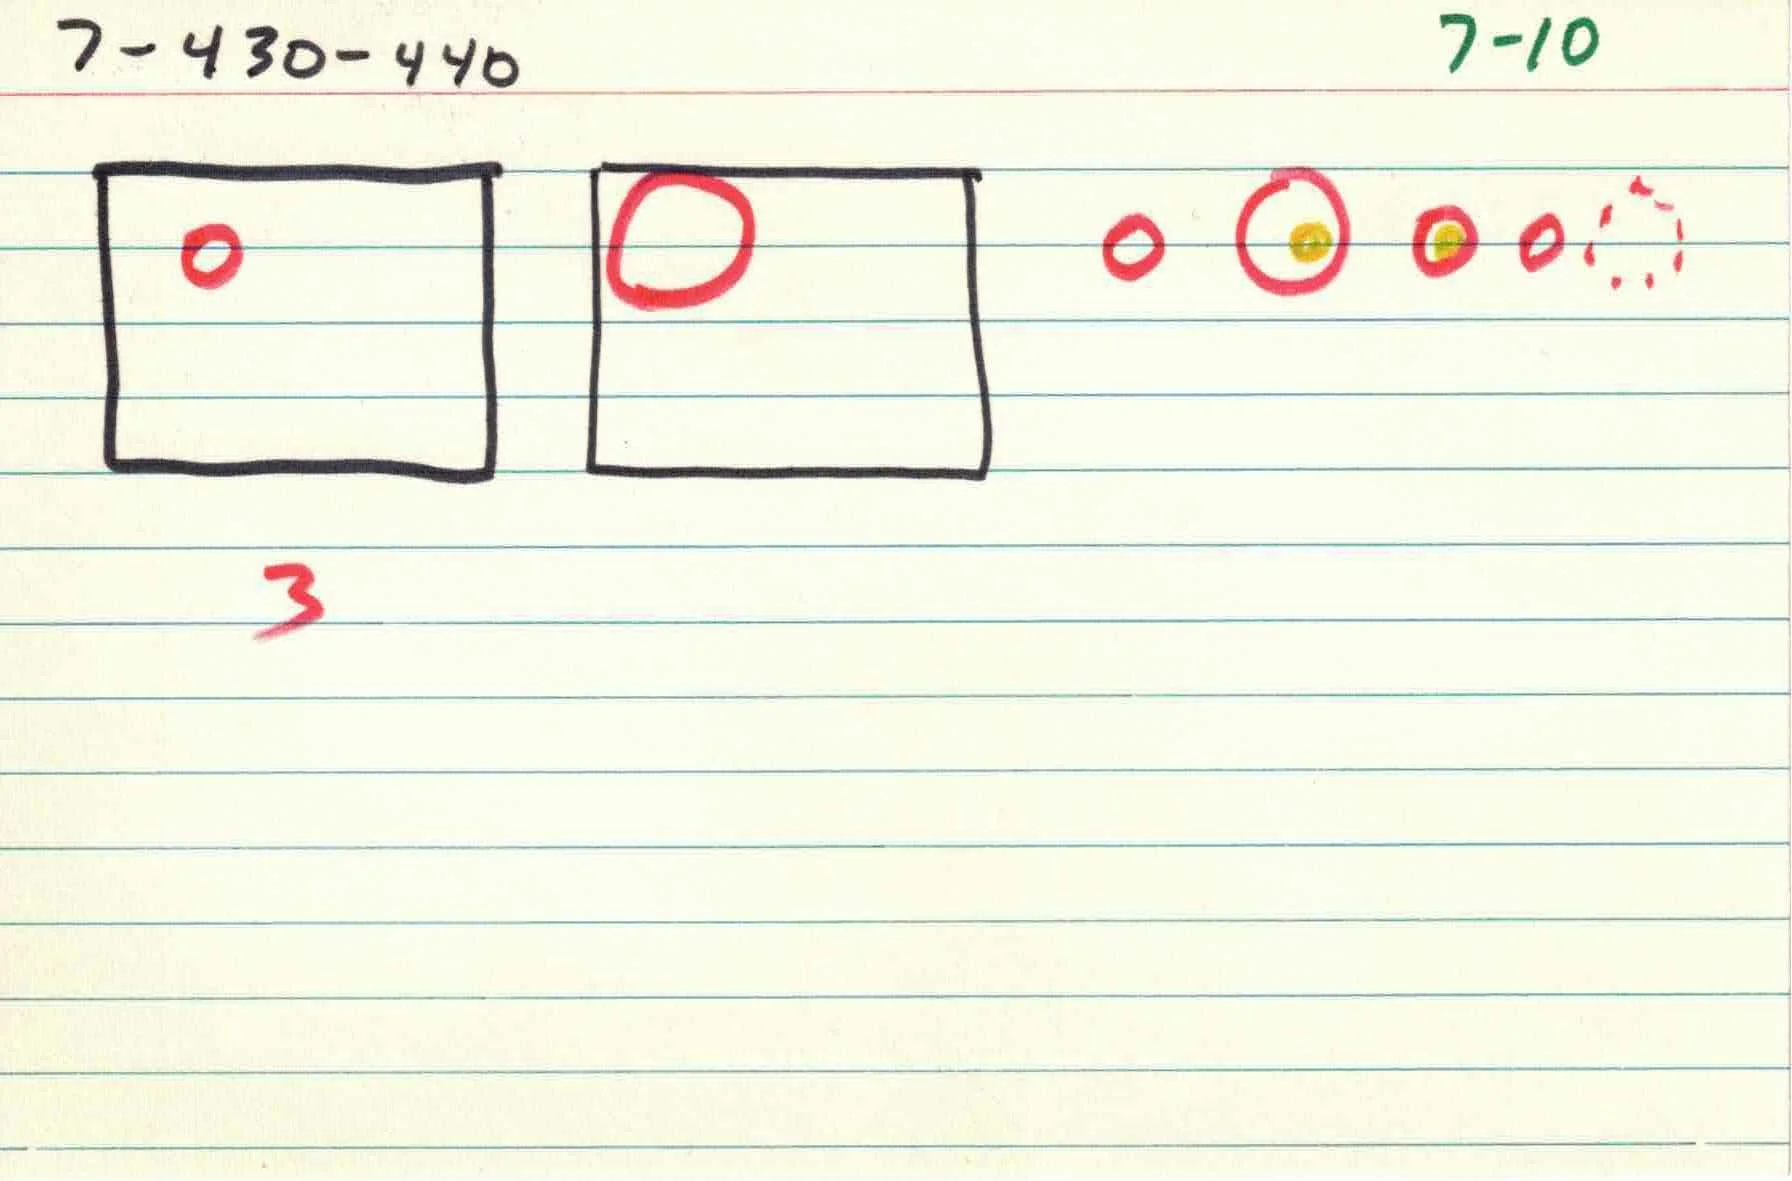 7-430-440 7-10
3